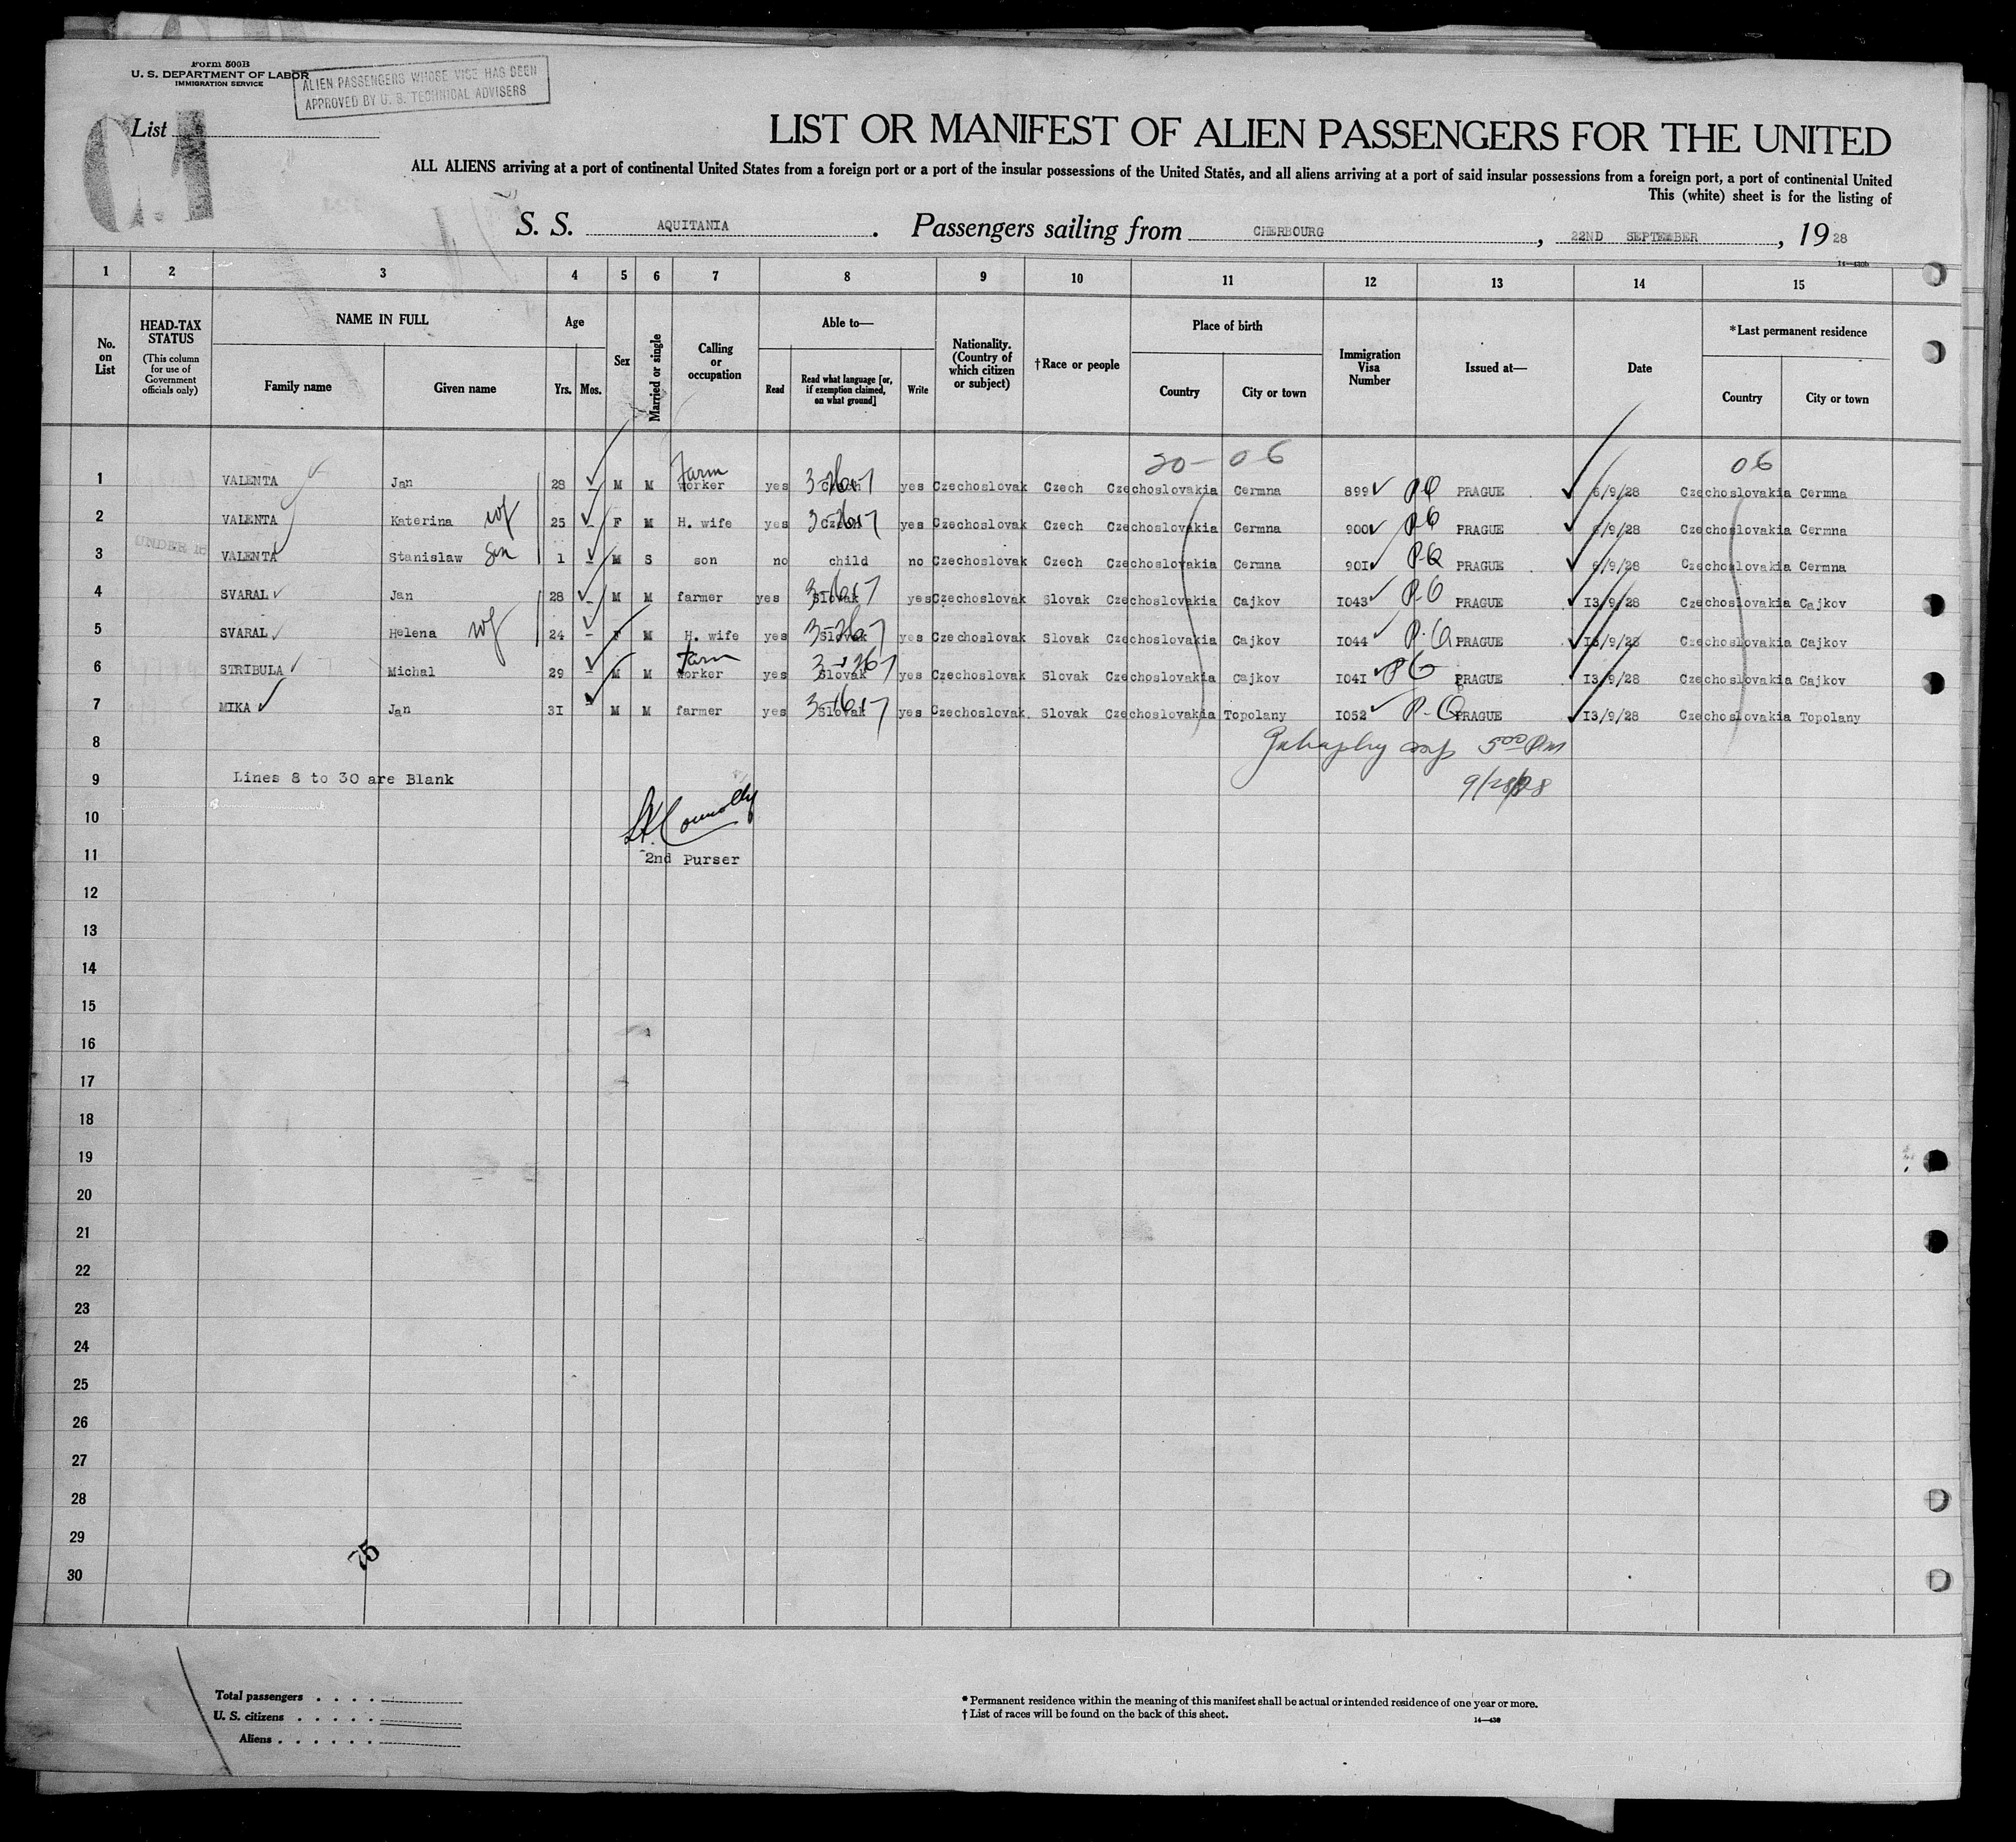 Form 500B
U. S. DEPARTMENT OF LABOR
IMMIGRATION SERVICE
ALIEN PASSENGERS WHOSE VISE HAS BEEN
APPROVED BY U. S. TECHNICAL ADVISERS
List
C.1
LIST OR MANIFEST OF ALIEN PASSENGERS FOR THE UNITED
ALL ALIENS arriving at a port of continental United States from a foreign port or a port of the insular possessions of the United States, and all aliens arriving at a port of said insular possessions from a foreign port, a port of continental United
This (white) sheet is for the listing of
S. S. AQUITANIA. Passengers sailing from CHERBOURG, 22ND SEPTEMBER, 19 28
14—430b
1 2 3 4 5 6 7 8 9 10 11 12 13 14 15
No. on List
HEAD-TAX STATUS (This column for use of Government officials only)
NAME IN FULL Family name Given name
Age Yrs. Mos.
Sex
Married or single
Calling or occupation
Able to— Read Read what language [or, if exemption claimed, on what ground] Write
Nationality. (Country of which citizen or subject)
†Race or people
Place of birth Country City or town
Immigration Visa Number
Issued at—
Date
*Last permanent residence Country City or town
20-06 06
1 VALENTA Jan 28 – M M Farm worker yes Czech yes Czechoslovak Czech Czechoslovakia Cermna 899 PRAGUE 6/9/28 Czechoslovakia Cermna
2 VALENTA Katerina wf 25 – F M H. wife yes Czech yes Czechoslovak Czech Czechoslovakia Cermna 900 PRAGUE 6/9/28 Czechoslovakia Cermna
UNDER 16
3 VALENTA Stanislaw Son 1 – M S son no child no Czechoslovak Czech Czechoslovakia Cermna 901 PRAGUE 6/9/28 Czechoslovakia Cermna
4 SVARAL Jan 28 – M M farmer yes Slovak yes Czechoslovak Slovak Czechoslovakia Cajkov 1043 PRAGUE 13/9/28 Czechoslovakia Cajkov
5 SVARAL Helena wf 24 – F M H. wife yes Slovak yes Czechoslovak Slovak Czechoslovakia Cajkov 1044 PRAGUE 13/9/28 Czechoslovakia Cajkov
6 STRIBULA Michal 29 – M M Farm worker yes Slovak yes Czechoslovak Slovak Czechoslovakia Cajkov 1041 PRAGUE 13/9/28 Czechoslovakia Cajkov
7 MIKA Jan 31 – M M farmer yes Slovak yes Czechoslovak. Slovak Czechoslovakia Topolany 1052 PRAGUE 13/9/28 Czechoslovakia Topolany
8 5 00 PM
9 Lines 8 to 30 are Blank 9/28/28
10 Connolly
11 2nd Purser
12
13
14
15
16
17
18
19
20
21
22
23
24
25
26
27
28
29
75
30
Total passengers . . . .
U. S. citizens . . . . .
Aliens . . . . . .
* Permanent residence within the meaning of this manifest shall be actual or intended residence of one year or more.
† List of races will be found on the back of this sheet.
14—430